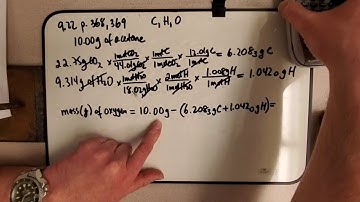 9.22 p. 368, 369 C, H, O
10.00g of acetone
22.75g CO₂ × 1molCO₂/44.01gCO₂ × 1molC/1molCO₂ × 12.01gC/1molC = 6.208₃gC
9.314g of H₂O × 1molH₂O/18.02gH₂O × 2molH/1molH₂O × 1.008gH/1molH = 1.042₀gH
mass(g) of oxygen = 10.00g - (6.208₃gC + 1.042₀gH) =